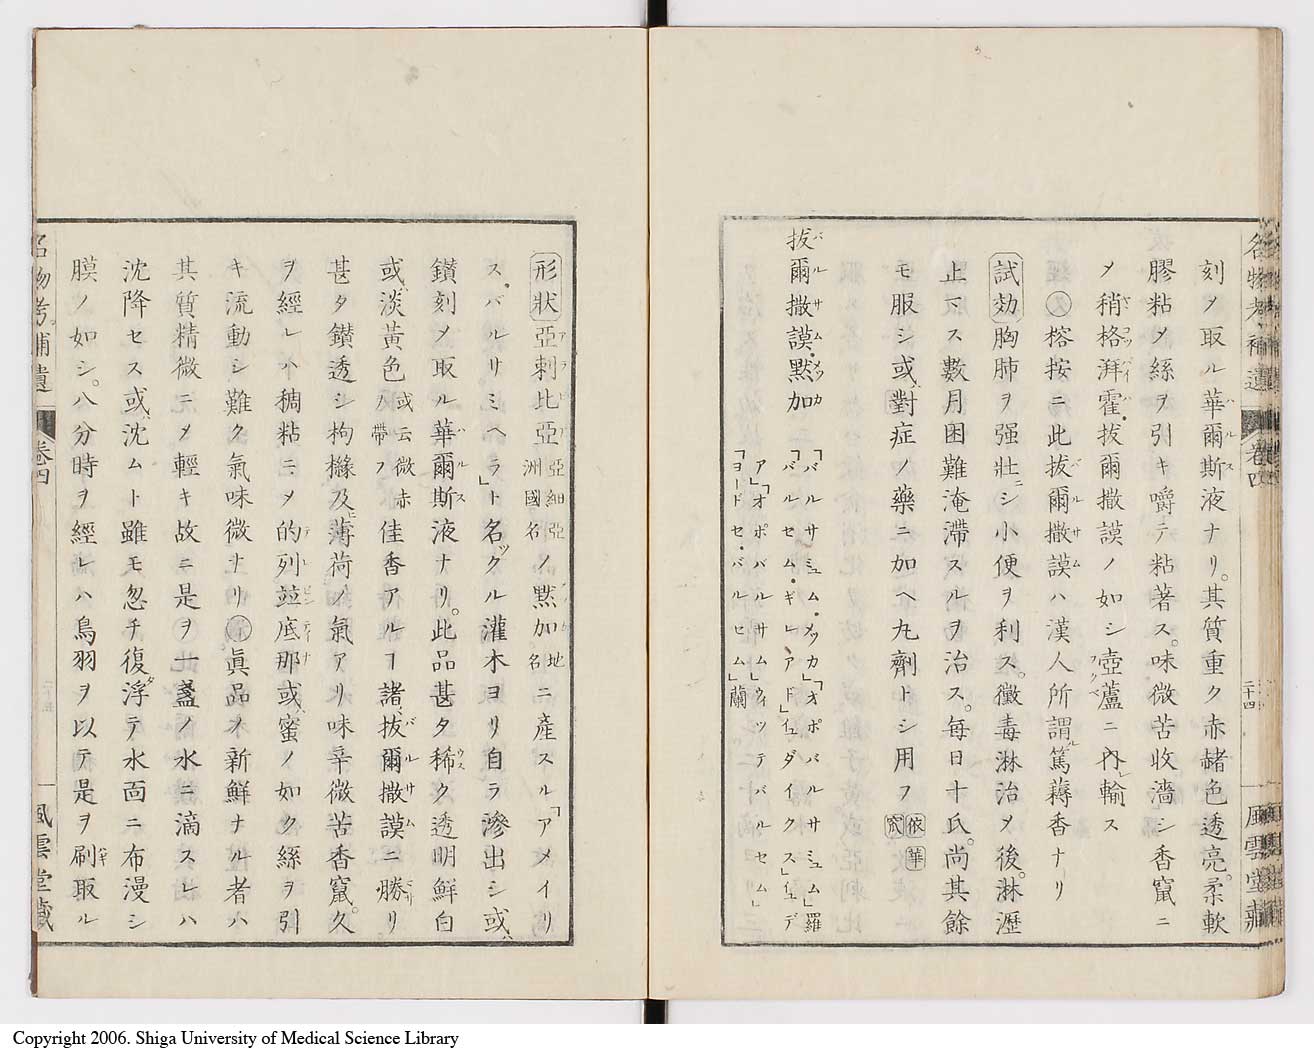 名物考補遺 卷四 二十四 風雲堂藏
刻ノ取ル華爾斯液ナリ。其質重ク赤赭色透亮。柔軟
膠粘メ絲ヲ引キ嚼テ粘著ス。味微苦收濇シ香竄ニ
メ稍格湃霍・拔爾撒謨ノ如シ壺蘆ニ內レ輸ス
㋨榕按ニ此拔爾撒謨ハ漢人所謂篤藭香ナリ
試効 胸肺ヲ强壯ニシ小便ヲ利ス。黴毒淋治メ後。淋瀝
止マス數月困難淹滯スルヲ治ス。每日十氏。尚其餘
モ服シ或ハ對症ノ藥ニ加ヘ丸劑トシ用フ 依 華
拔爾撒謨・默加 「バルサミュム・メッカ」「オポバルサミュム」羅
「バルセム・ギレアド」「ユダイクス」「ユデ
ア」「オポバルサム」「ウィッテバルセム」
「ヨードセ・バルセム」蘭
形狀 亞剌比亞 亞細亞洲國名 ノ默加 地名 ニ產スル「アメイリ
ス・バルサミヘラ」ト名クル灌木ヨリ自ラ滲出シ或ハ
鑽刻メ取ル華爾斯液ナリ。此品甚タ稀ク透明鮮白
或ハ淡黃色 或云微赤ヲ帶フ 佳香アルヿ諸拔爾撒謨ニ勝リ
甚タ鑽透シ枸櫞及ヒ薄荷ノ氣アリ味辛微苦香竄。久
ヲ經レハ稠粘ニメ的列並底那或ハ蜜ノ如ク絲ヲ引
キ流動シ難ク氣味微ナリ 眞品ノ新鮮ナル者ハ
其質精微ニメ輕キ故ニ是ヲ一盞ノ水ニ滴スレハ
沈降セス或ハ沈ムト雖モ忽チ復浮テ水面ニ布漫シ
膜ノ如シ。八分時ヲ經レハ鳥羽ヲ以テ是ヲ刷取ル
名物考補遺 卷四 風雲堂藏
Copyright 2006. Shiga University of Medical Science Library